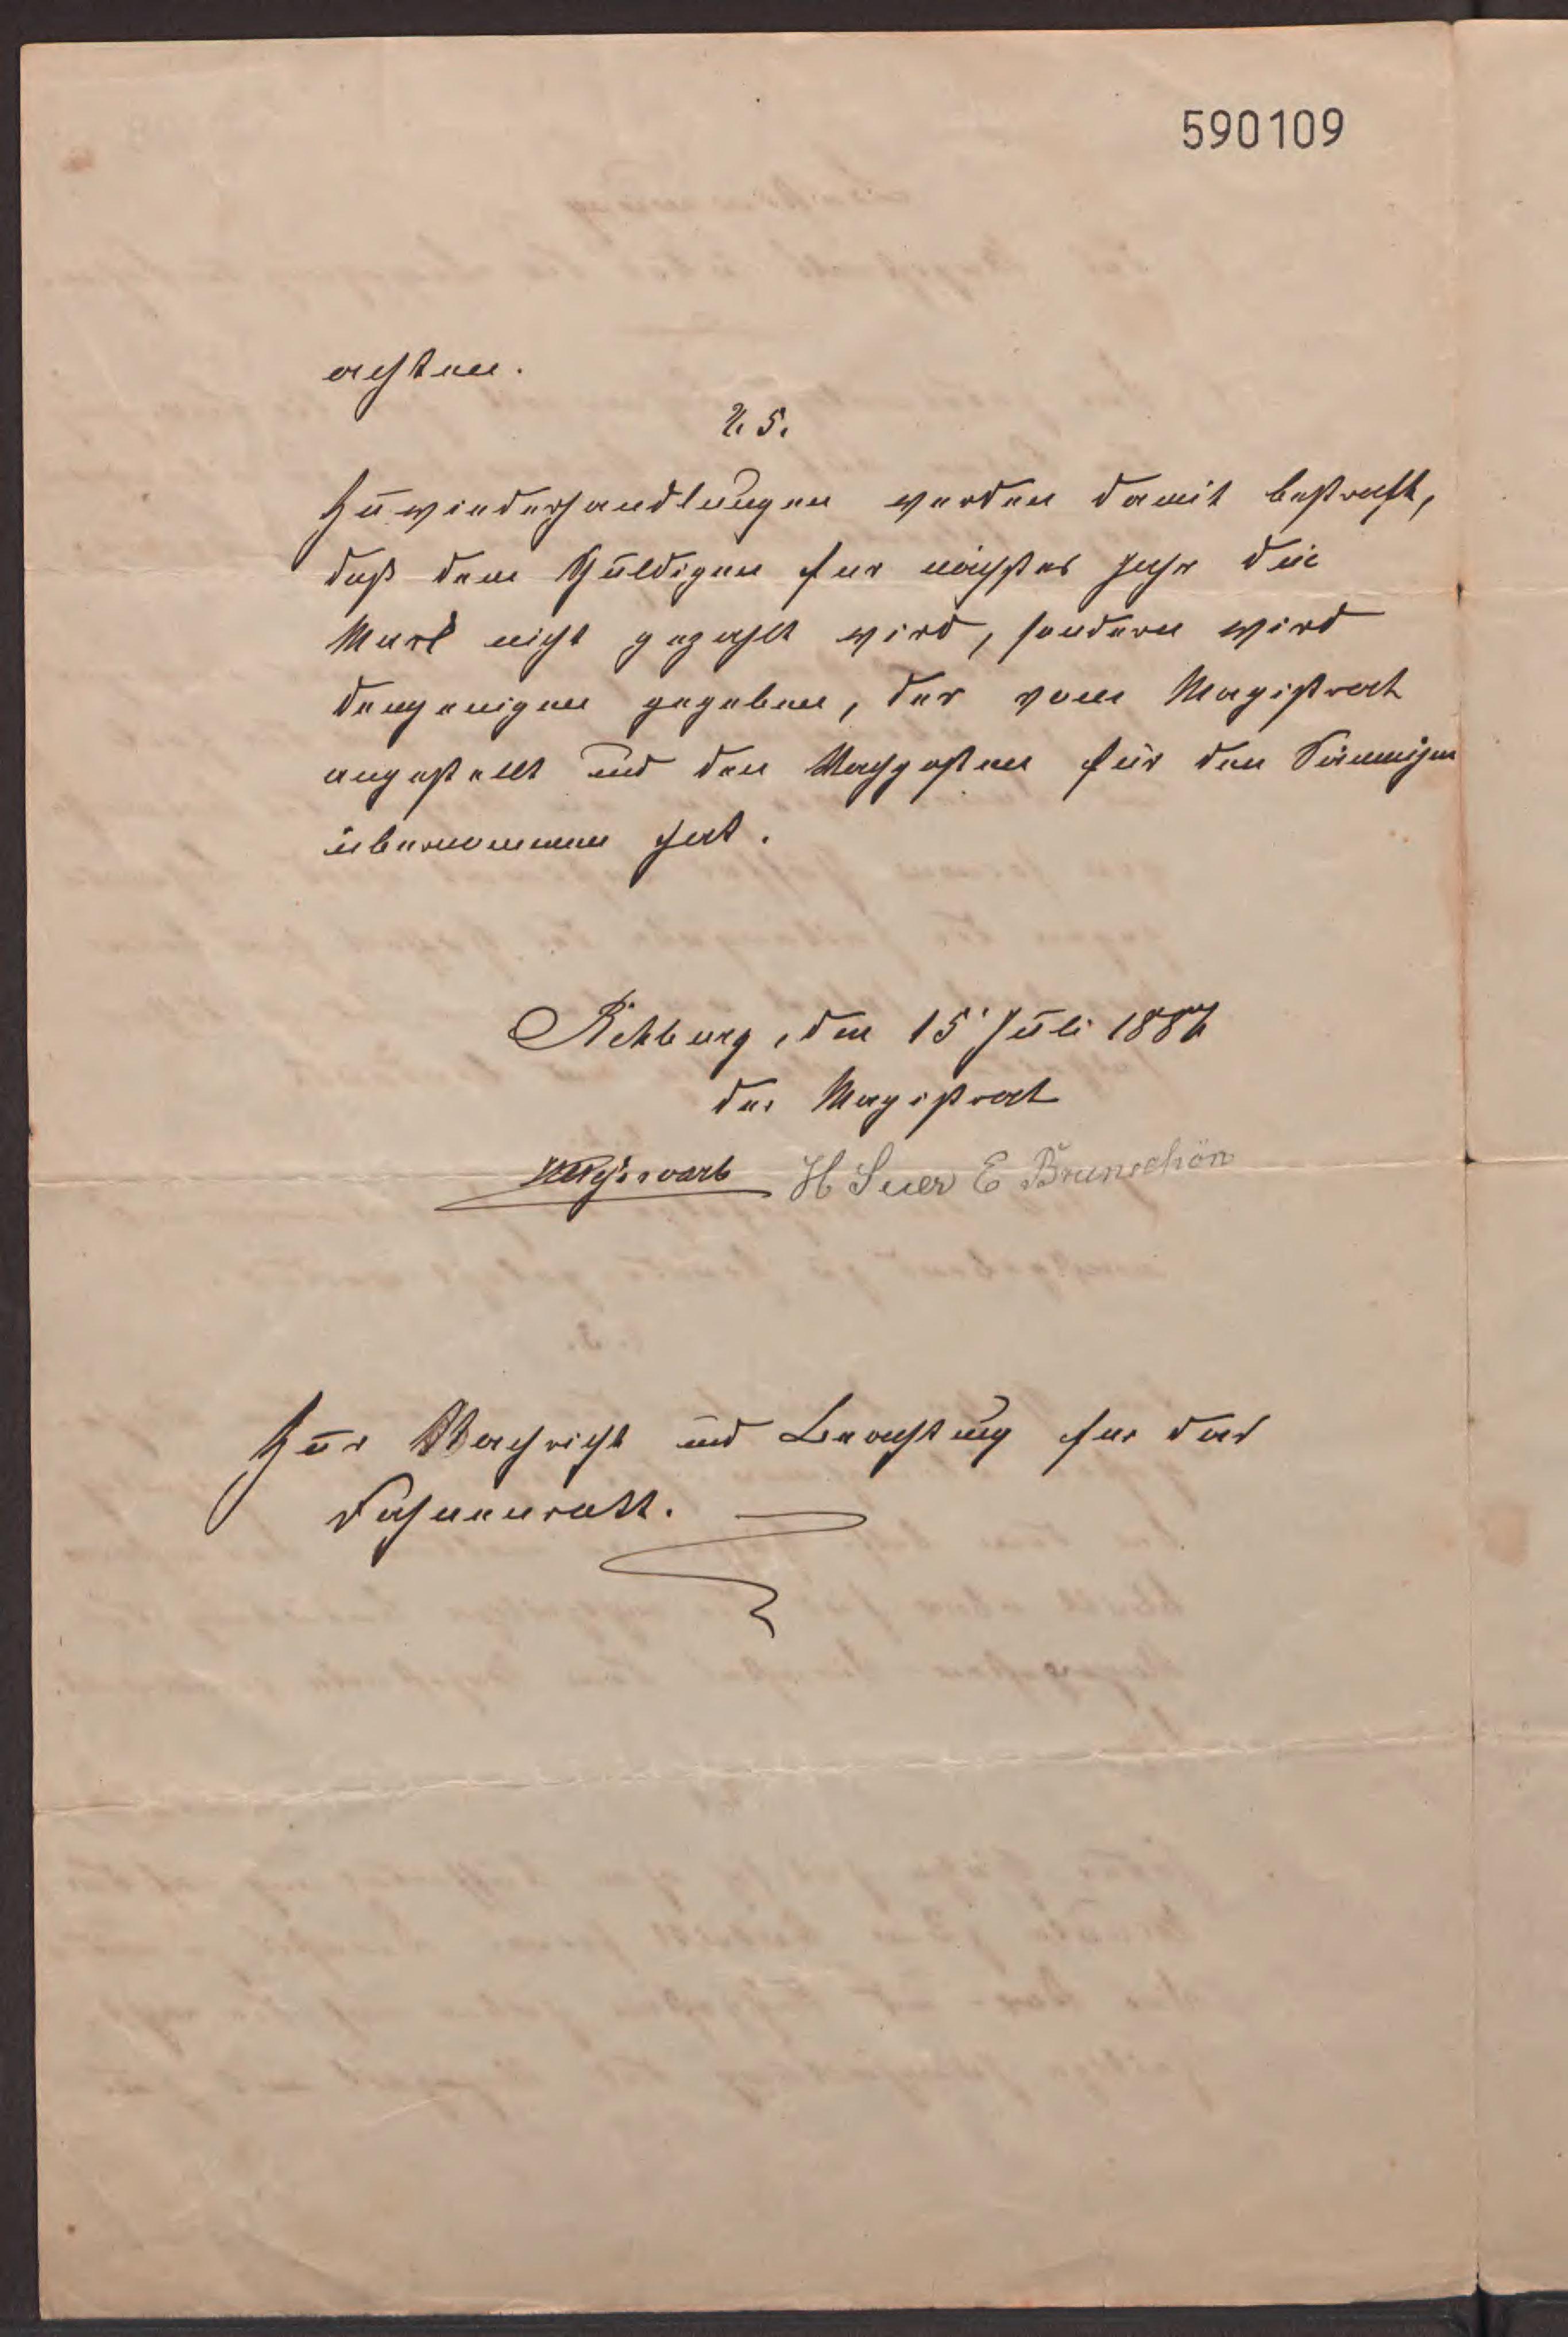 590109
achten.
§. 5.
Zuwiederhandlungen werden damit bestraft,
daß dem Schuldigen fur nächstes Jahr die
Mark nicht gezahlt wird, sondern wird
demjenigen gegeben, der vom Magistrat
angestellt und den Wachposten für den Säumigen
übernommen hat.
Rehburg, den 15 Juli 1887
Der Magistrat
H Suer E Brunschön
Zur Nachricht und Beachtung fur das